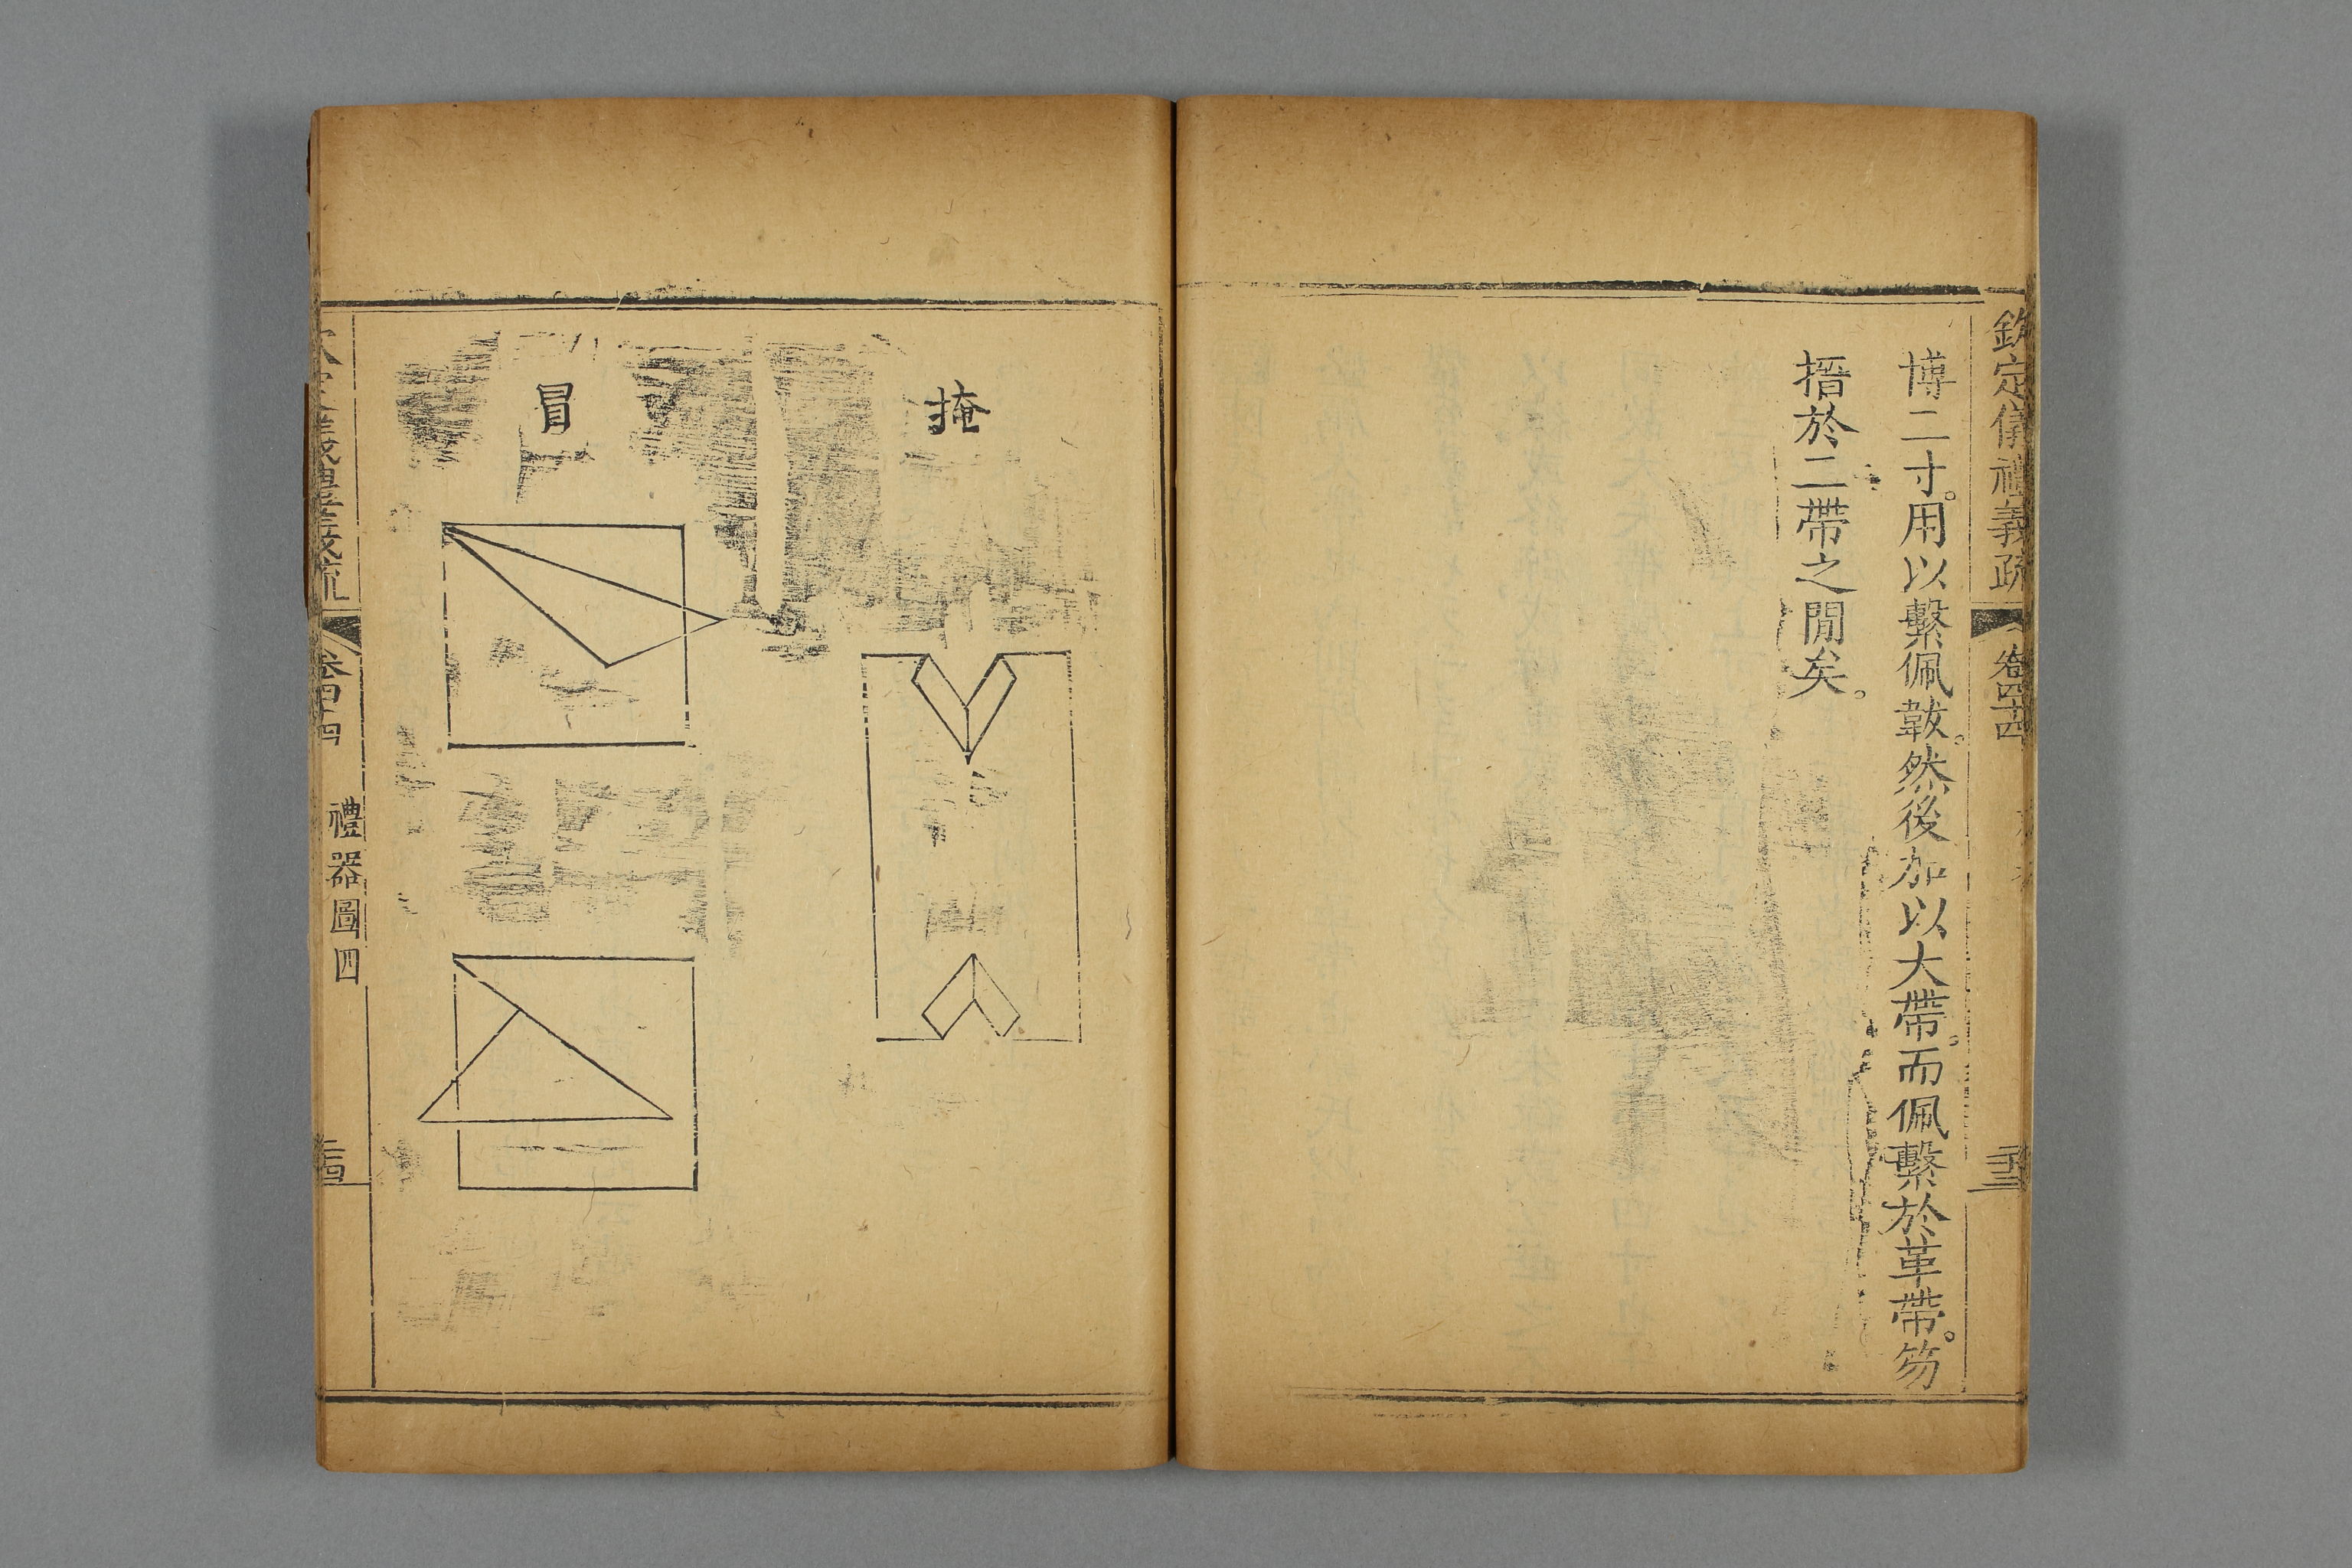 欽定儀禮義疏
卷四十四
博二寸。用以繫佩韍。然後加以大帶。而佩繫於革帶。笏
搢於二帶之閒矣。
掩
冒
卷四十四
禮器圖四